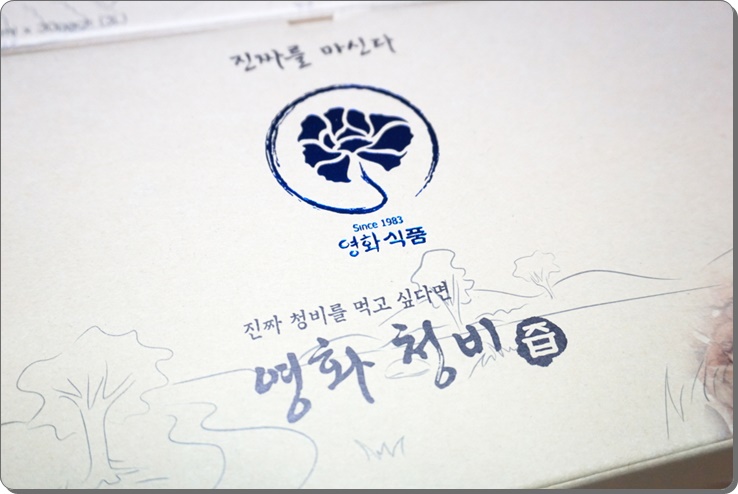 진짜를 마신다
Since 1983
영화식품
진짜 청비를 먹고 싶다면
영화 청비 즙